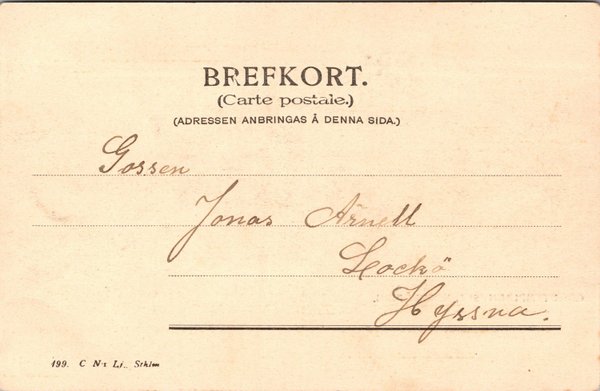 BREFKORT.
(Carte postale.)
(ADRESSEN ANBRINGAS Å DENNA SIDA.)
Gossen
Jonas Arnell
Lockö
Hyssna.
199. C N:s Li., Sthlm